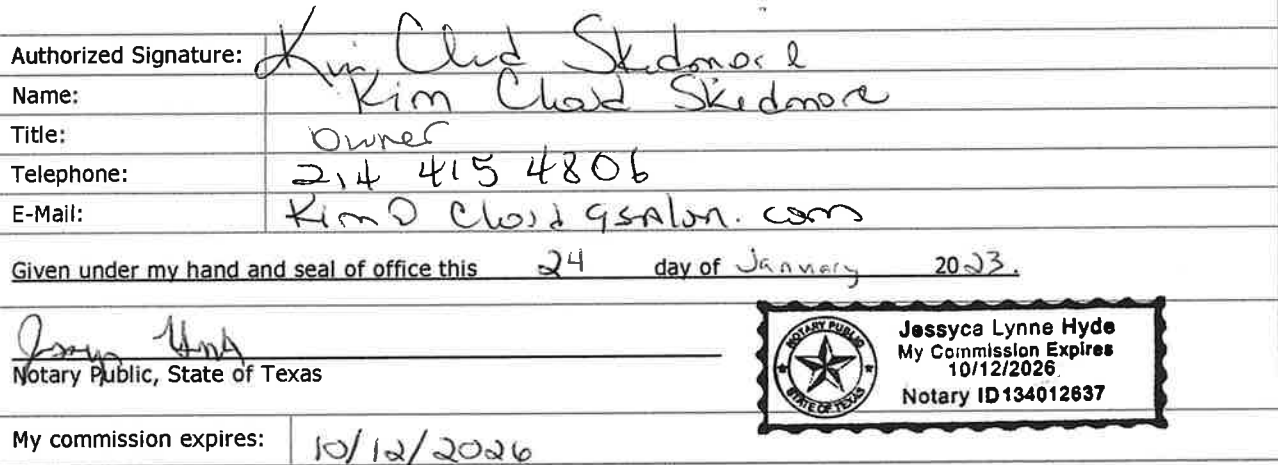 Authorized Signature: Kim Chad Skidmore
Name: Kim Chad Skidmore
Title: Owner
Telephone: 214 415 4806
E-Mail:
Given under my hand and seal of office this 24 day of January 2023.
Notary Public, State of Texas
NOTARY PUBLIC
STATE OF TEXAS
Jessyca Lynne Hyde
My Commission Expires
10/12/2026
Notary ID134012637
My commission expires: 10/12/2026